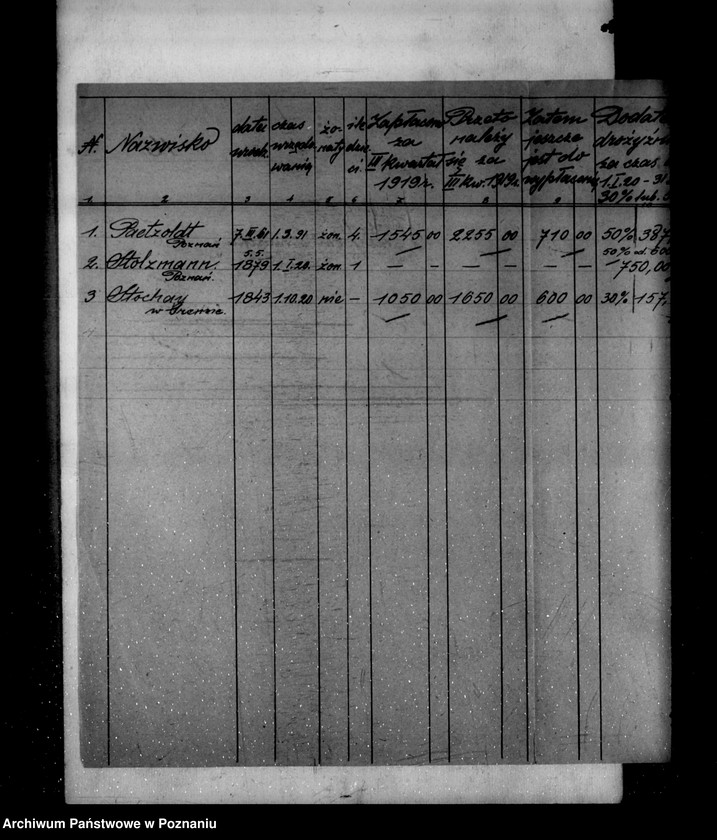 N. Nazwisko data urodz. czas urzędo wania żo- naty ile dzie ci. Zapłacono za III kwartał 1919r. Przeto należy się za III kw. 1919r. Zatem jeszcze jest do wypłacenia Dodate drożyźn za czas 1.I.20 - 31 30% lub.
1. 2 3 4 5 6 7 8 9
1. Paetzoldt 7.III.61 1.3.91 żon. 4. 1545 00 2255 00 710 00 50% 387
Poznań
2. Stolzmann. 5.5. 1879 1.I.20. żon. 1 — — — — — — 50% od. 600 750,00
Poznań.
3 Stochay 1843 1.10.20 nie — 1050 00 1650 00 600 00 30% 157,
w
Archiwum Państwowe w Poznaniu